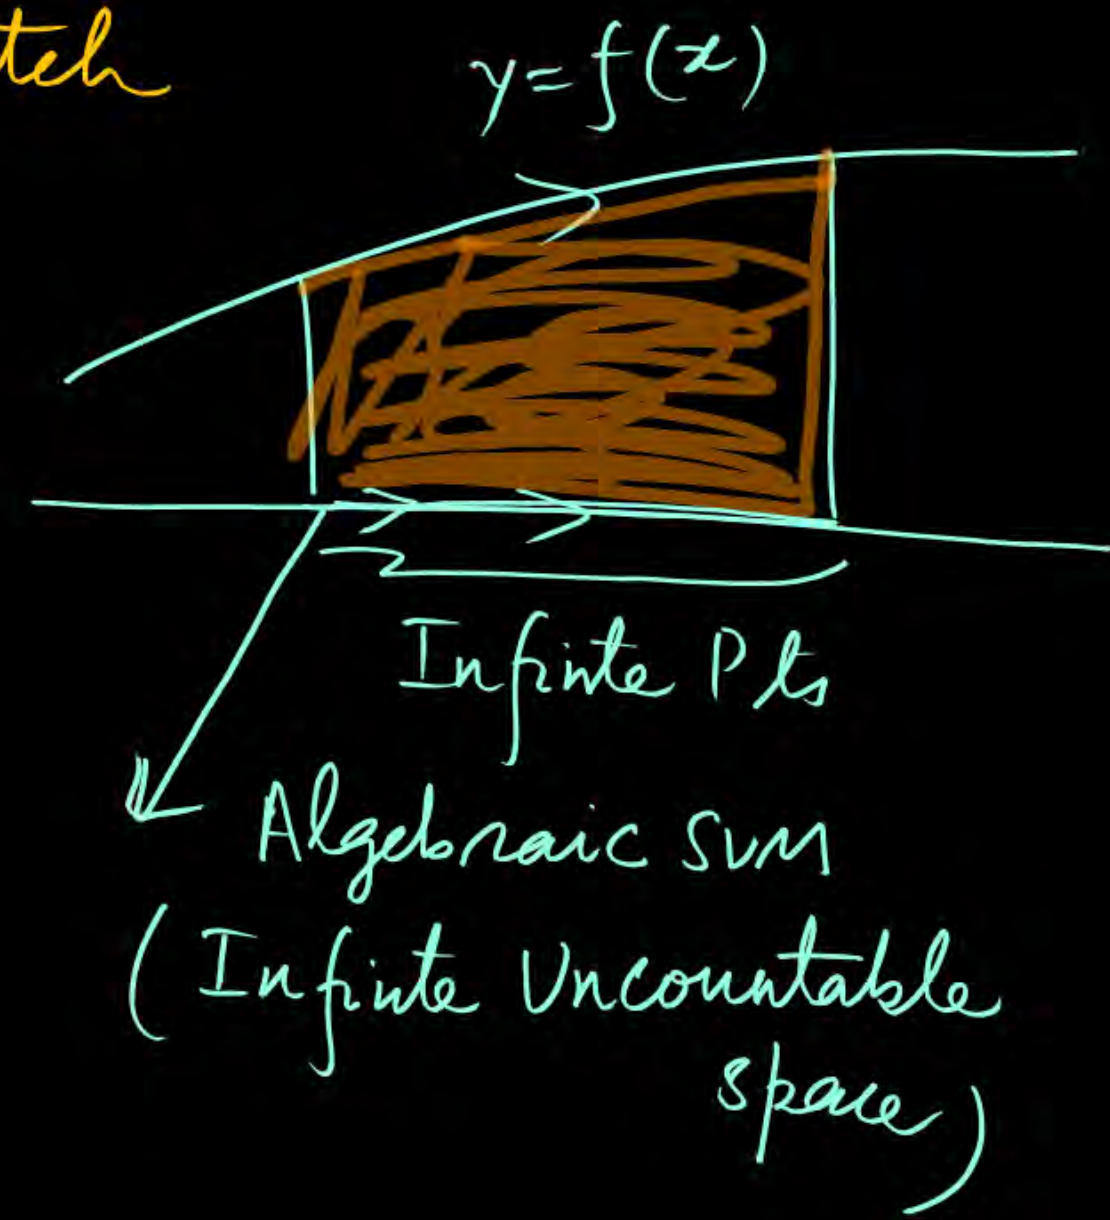 y = f(x)
Infinite Pts
Algebraic SUM
( Infinite Uncountable
space )